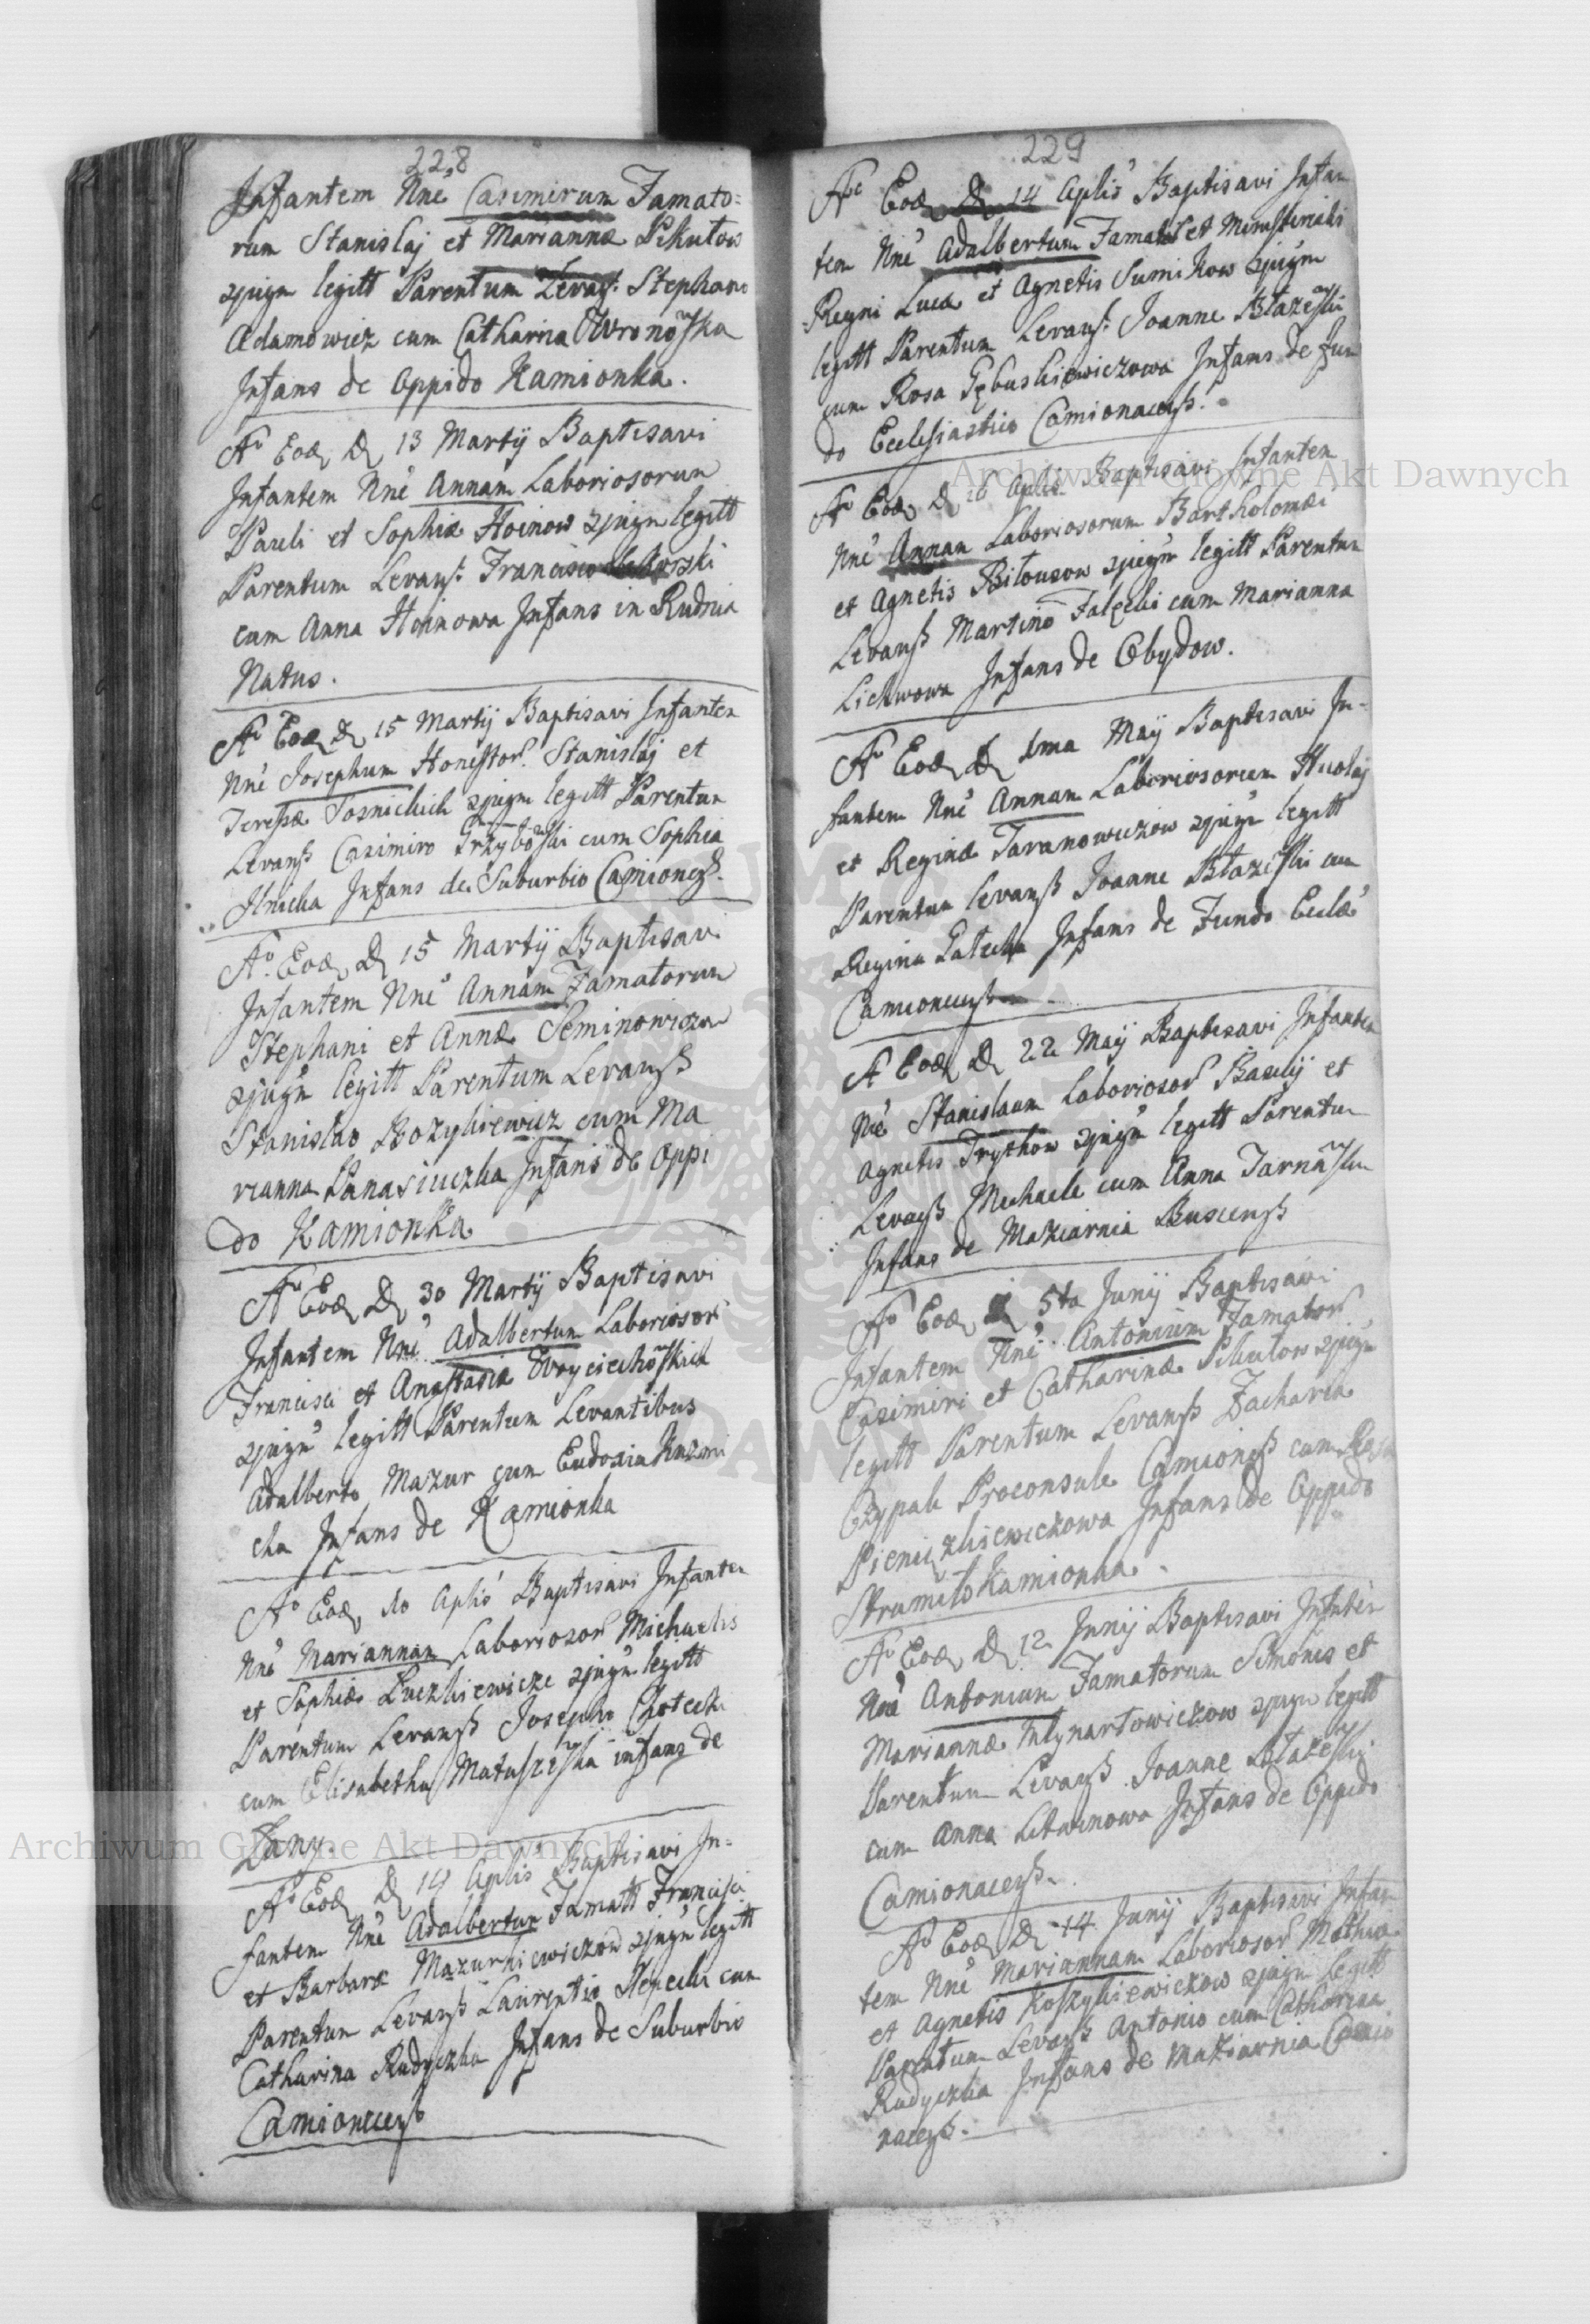 228
Infantem Nnẽ Casimirum Famato=
rum Stanislaj et Mariannæ Pikulow
gjugm legitt Parentum Levanſ. Stephano
Adamowicz cum Catharina Wronoſka
Infans de Oppido Kamionka.
Aº Eod D 13 Martij Baptisavi
Infantem Nnẽ Annam Laboriosorum
Pauli et Sophiæ Hoinow gjugm legitt
Parentum Levanſ. Francisco
cum Anna Hoinowa Infans in Rudnia
Natus.
Aº Eod D 15 Martij Baptisavi Infantem
Nnẽ Josephum Honestor. Stanislaj et
Teresæ gjugm legitt Parentum
Levanß Casimiro Grzyboſki cum Sophia
Infans de Suburbio Camionceß.
Aº Eod D 15 Martij Baptisavi
Infantem Nnẽ Annam Famatorum
Stephani et Annæ Seminowiczow
gjugm legitt Parentum Levanß
Stanislao Bozykiewicz cum Ma
rianna Panasiuczka Infans de Oppi
do Kamionka.
Aº Eod D 30 Martij Baptisavi
Infantem Nnẽ Adalbertum Laboriosor
Francisci et Anastasiæ Woyciechoſkich
gjugm legitt Parentum Levantibus
Adalberto Mazur cum Eudoxia Kuzmi
cha Infans de Kamionka
Aº Eod 10 Aplis Baptisavi Infantem
Nnẽ Mariannam Laboriosor Michaelis
et Sophiæ Luczkiewicze gjugm legitt
Parentum Levanß Josepho Chotecki
cum Elisabetha Matuſzeſka infans de
Łany.
Aº Eod D 14 Aplis Baptisavi In=
fantem Nnẽ Adalbertum Famatt Francisci
et Barbaræ Mazurkiewiczow gjugm legitt
Parentum Levanß Laurentio Stepecki cum
Catharina Rudyczka Infans de Suburbio
Camionceß
229
Aº Eod D 14 Aplis Baptisavi Infan
tem Nnẽ Adalbertum Famatt et Ministerialis
Regni Lucæ et Agnetis Sumikow gjugm
legitt Parentum Levanſ. Joanne Błażeſki
cum Rosa Gębuskiewiczowa Infans de fun
do Ecclesiastico Camionaceß.
Aº Eod D 26 Aplis Baptisavi Infantem
Nnẽ Annam Laboriosorum Bartholomæi
et Agnetis Bilousow gjugm legitt Parentum
Levanß Martino Fałęcki cum Marianna
Lichwowa Infans de Obydow.
Aº Eod D 1ma Maij Baptisavi In=
fantem Nnẽ Annam Laboriosorum Nicolaj
et Reginæ Taranowiczow gjugm legitt
Parentum Levanß Joanne Błażeſki cum
Regina Infans de Fundo Eccłæ
Camionceß
A Eod D 22 Maij Baptisavi Infantem
Nnẽ Stanislaum Laboriosor Basilij et
Agnetis Trythow gjugm legitt Parentum
Levanß Michaele cum Anna Tarnaſka
Infans de Maziarnia Busceß
Aº Eod D 5ta Junij Baptisavi
Infantem Nnẽ Antonium Famator
Casimiri et Catharinæ Pikulow gjugm
legitt Parentum Levanß Zacharia
Czypak Proconsule Camionß cum Rosa
Pieniążkiewiczowa Infans de Oppido
Strumiło Kamionka.
Aº Eod D 12 Junij Baptisavi Infantem
Nnẽ Antonium Famatorum Simonis et
Mariannæ Młynartowiczow gjugm legitt
Parentum Levanß Joanne Błażeſki
cum Anna Litwinowa Infans de Oppido
Camionaceß.
Aº Eod D 14 Junij Baptisavi Infan
tem Nnẽ Mariannam Laboriosor Mathiæ
et Agnetis Koſzykiewiczow gjugm legitt
Parentum Levanß Antonio cum Catharina
Rudyczka Infans de Maziarnia Camio
naceß.
Archiwum Główne Akt Dawnych
Archiwum Główne Akt Dawnych